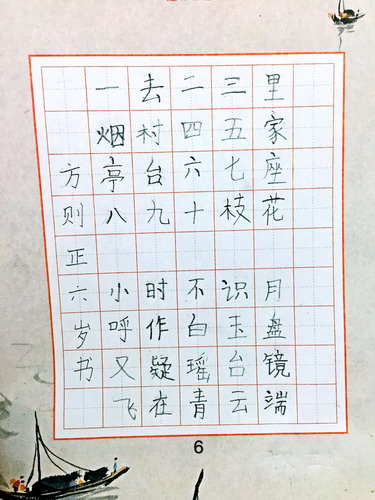 一去二三里
烟村四五家
亭台六七座
八九十枝花
小时不识月
呼作白玉盘
又疑瑶台镜
飞在青云端
方则正六岁书
6